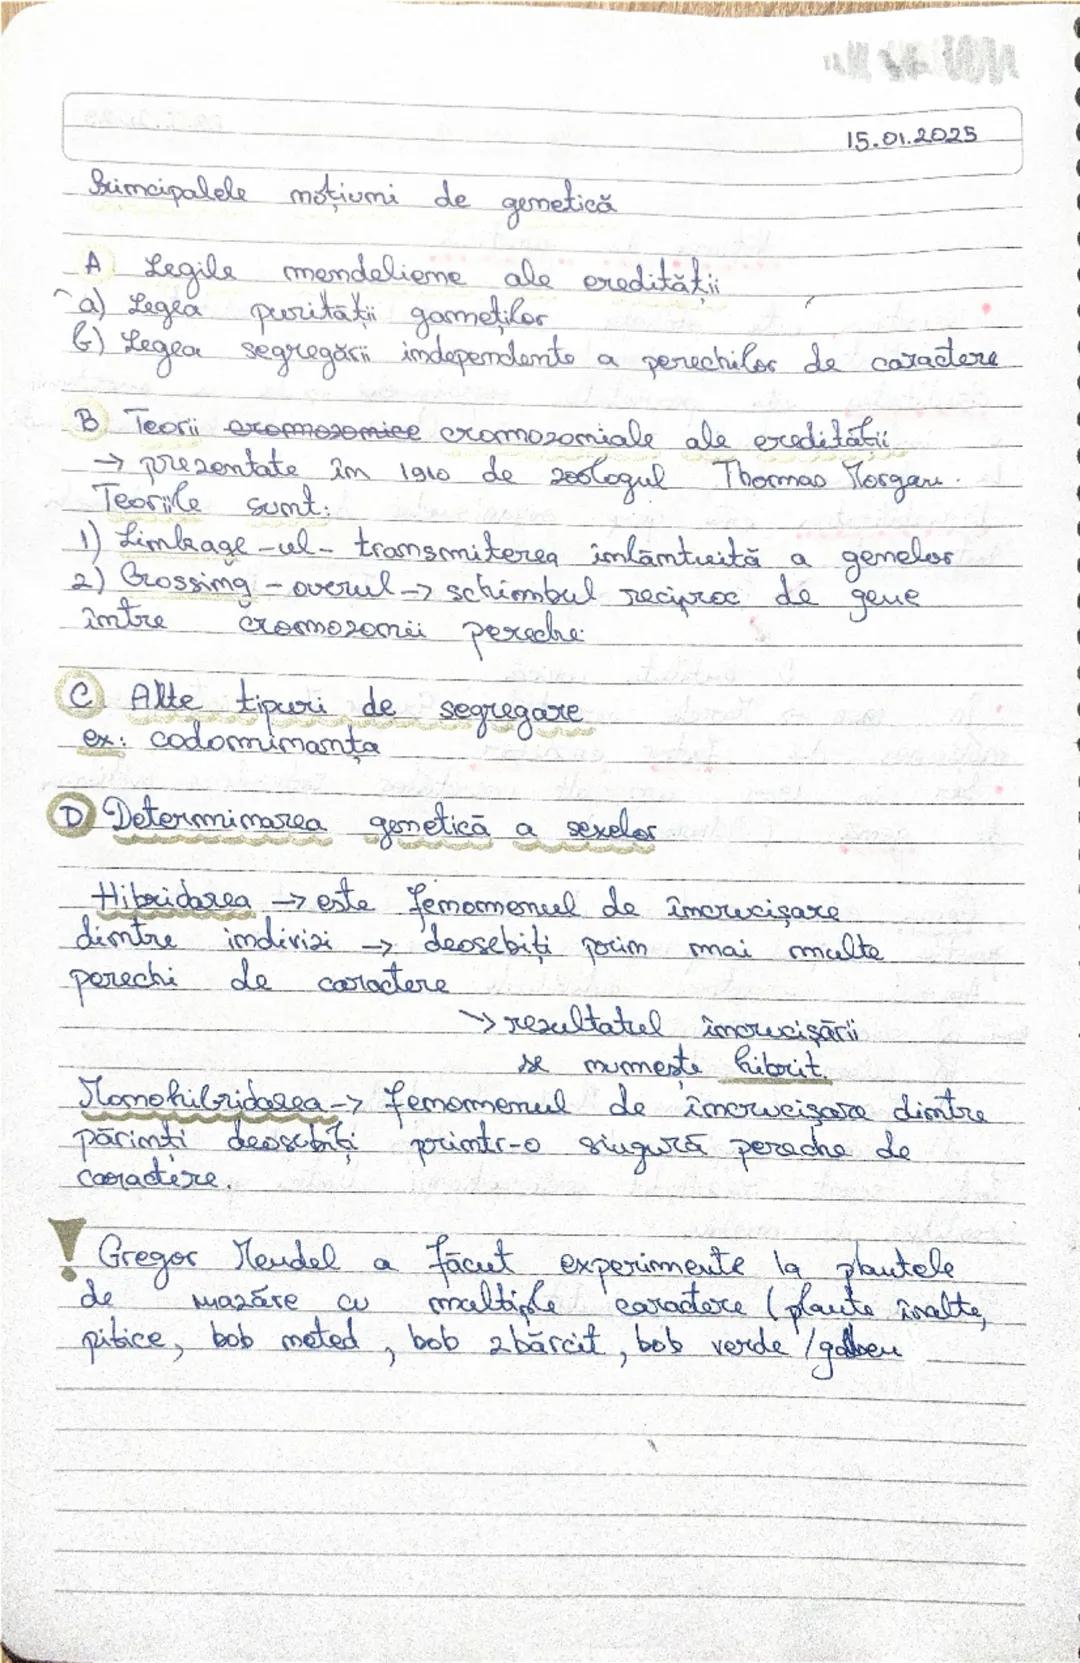 15.01.2025
Principalele noțiuni de genetică
A Legile mendeliene ale eredității
a) Legea purității gameților
b) Legea segregării independente a perechilor de caractere
B Teorii cromozomice cromozomiale ale eredității
→ prezentate în 1910 de zoologul Thomas Morgan.
Teoriile sunt:
1) Linkage-ul - transmiterea înlănțuită a genelor
2) Crossing-overul → schimbul reciproc de gene
între cromozomii pereche.
C Alte tipuri de segregare
ex: codominanța
D Determinarea genetică a sexelor
Hibridarea → este fenomenul de încrucișare
dintre indivizi → deosebiți prin mai multe
perechi de caractere
→ rezultatul încrucișării
se numește hibrit.
Monohibridarea → fenomenul de încrucișare dintre
părinți deosebiți printr-o singură pereche de
caractere.
! Gregor Mendel a făcut experimente la plantele
de mazăre cu multiple caractere (plante înalte,
pitice, bob neted, bob zbârcit, bob verde / galben